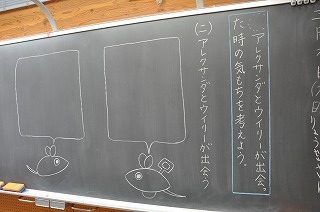 アレクサンダとウイリーが出会っ
た時の気もちを考えよう。
(二)アレクサンダとウイリーが出会う